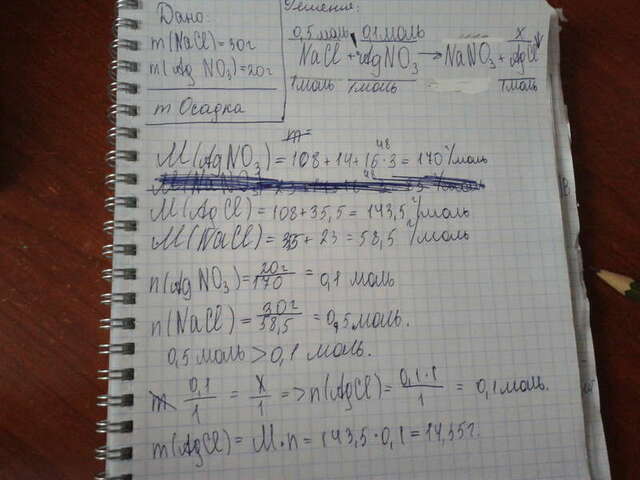 Дано:
m(NaCl)=30г
m(AgNO3)=20г
m Осадка
Решение:
0,5 моль 0,1 моль x
NaCl + AgNO3 → NaNO3 + AgCl↓
1моль 1моль 1моль
M(AgNO3)=108+14+16·3=170 г/моль
48
M(AgCl)=108+35,5=143,5 г/моль
M(NaCl)=35+23=58,5 г/моль
n(AgNO3)=20г/170=0,1 моль
n(NaCl)=30г/58,5=0,5моль.
0,5 моль>0,1 моль.
0,1/1=x/1=>n(AgCl)=0,1·1/1=0,1моль.
m(AgCl)=M·n=143,5·0,1=14,35г.